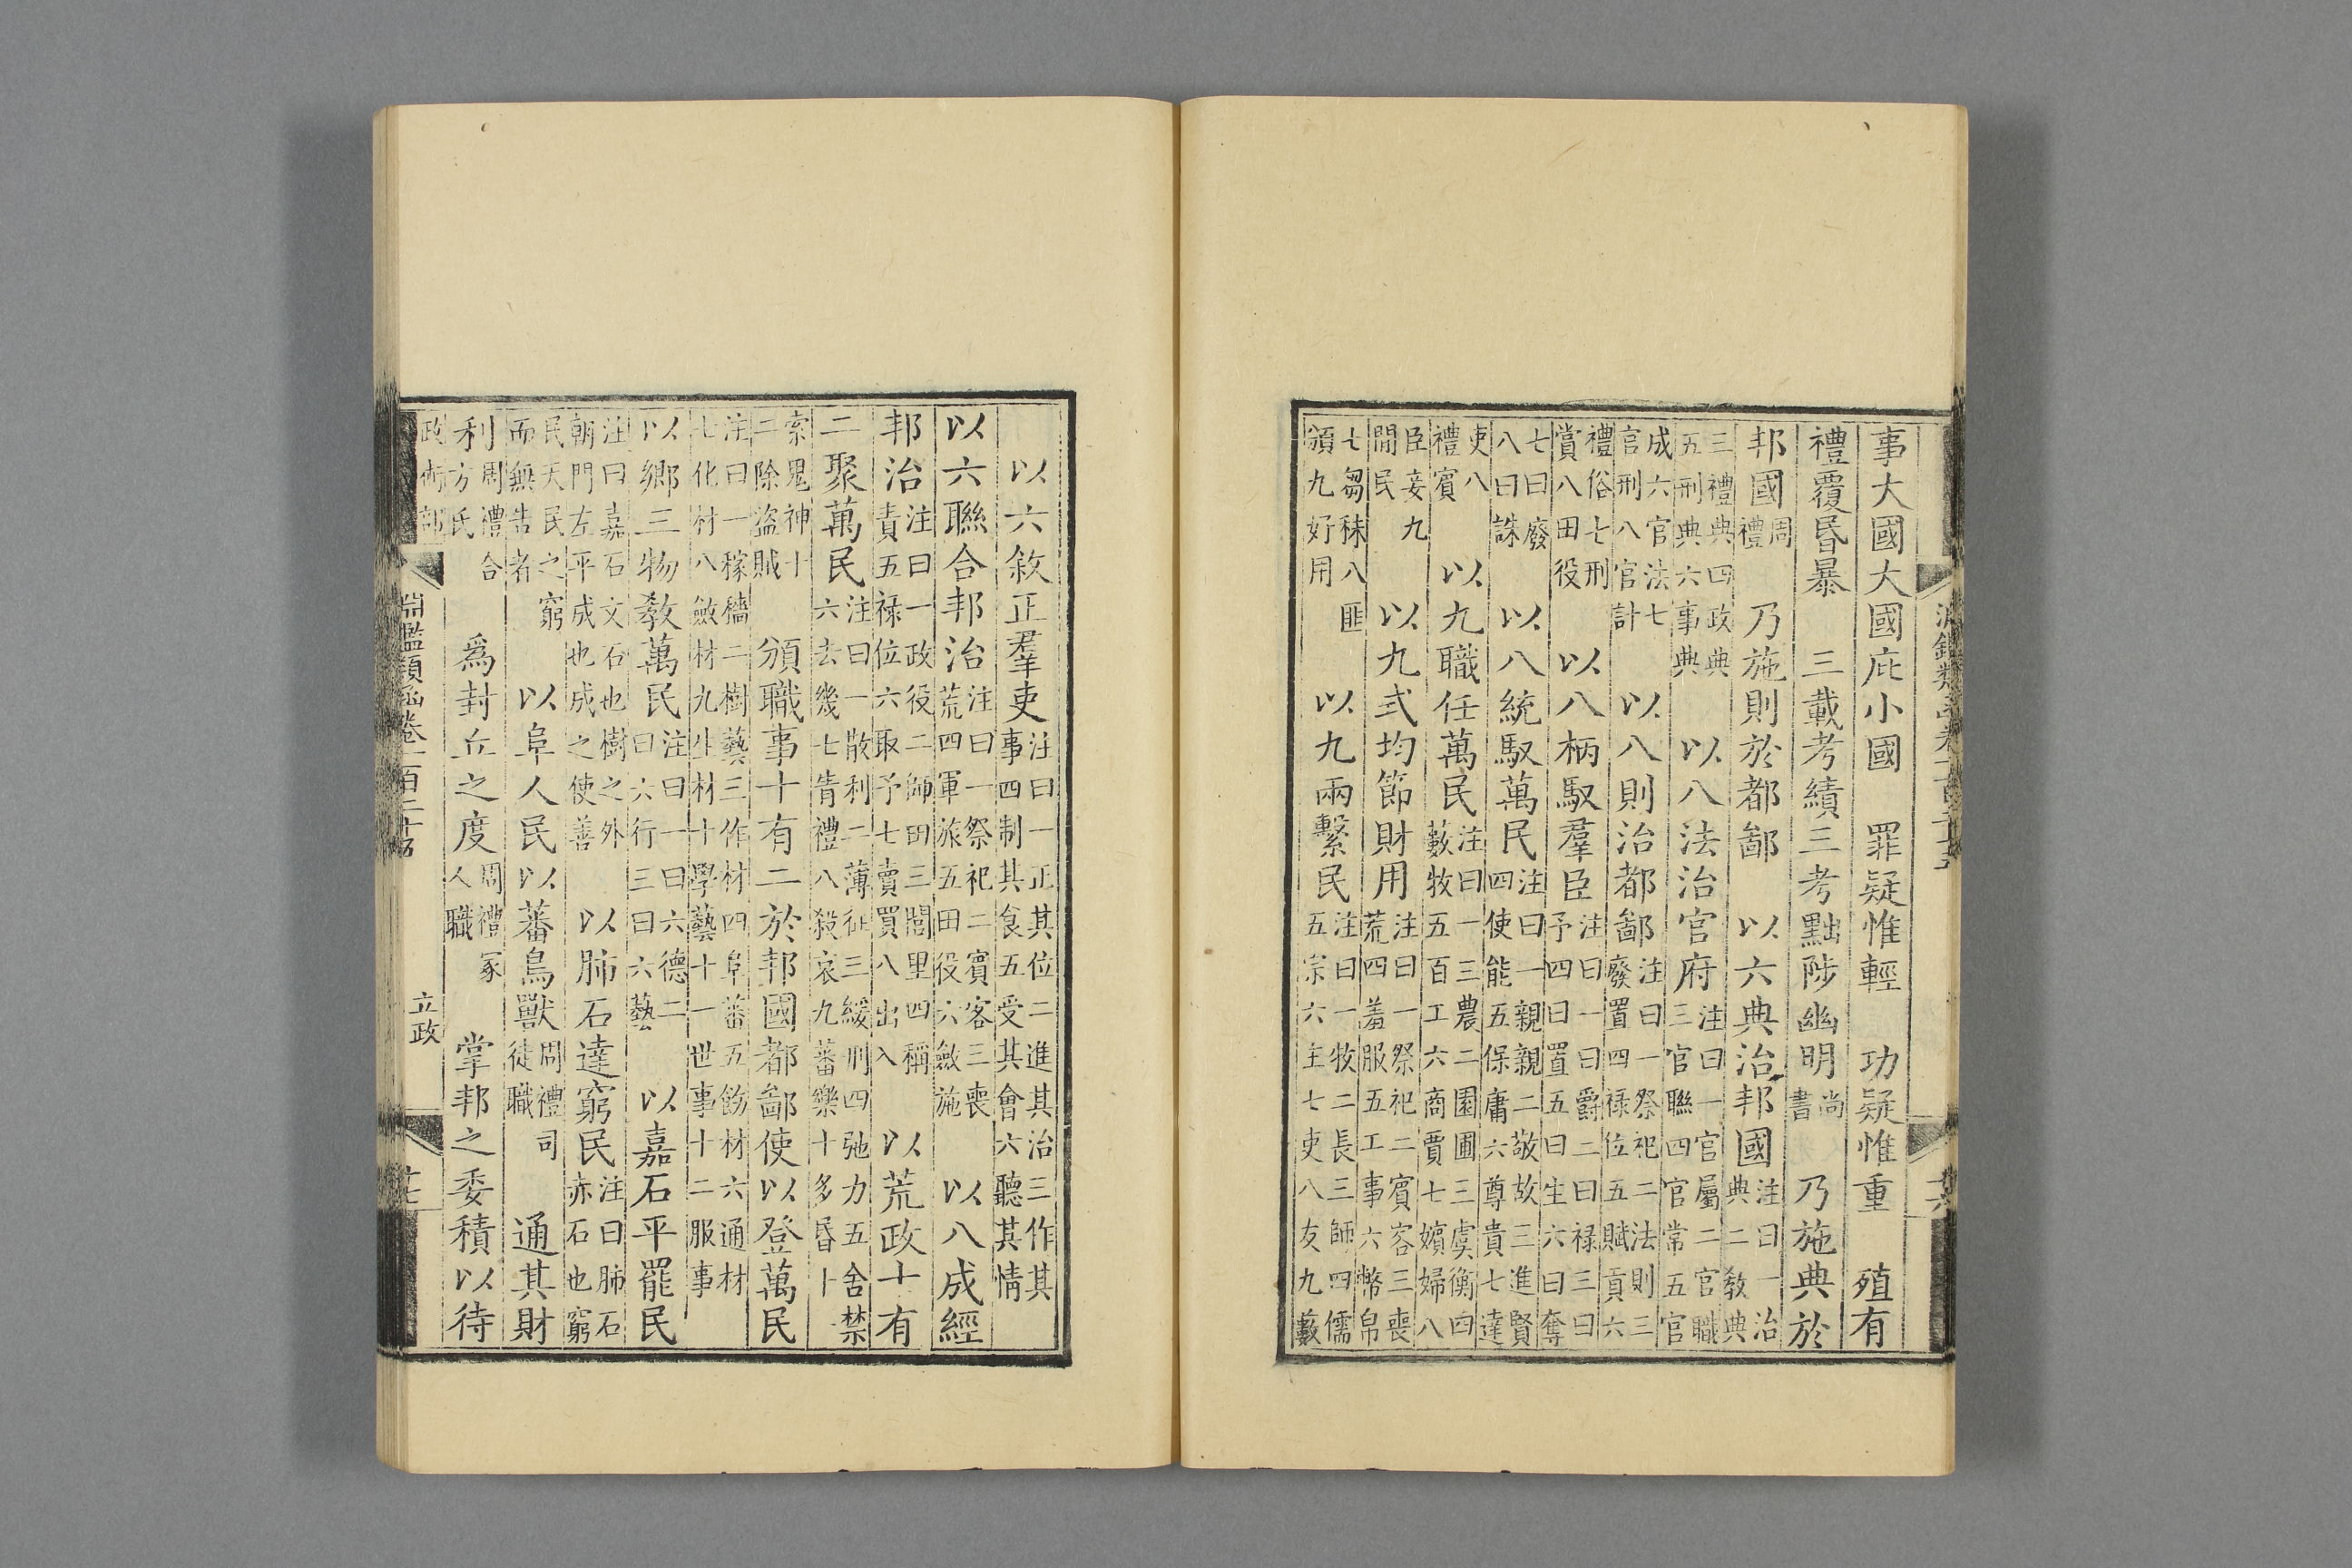 淵鑑類函卷一百二十五
事大國大國庇小國 罪疑惟輕 功疑惟重 殖有
禮覆昏暴 三載考績三考黜陟幽明尚書 乃施典於
邦國周禮 乃施則於都鄙 以六典治邦國注曰一治典二敎典
三禮典四政典五刑典六事典 以八法治官府注曰一官屬二官職三官聯四官常五官
成六官法七官刑八官計 以八則治都鄙注曰一祭祀二法則三廢置四祿位五賦貢六
禮俗七刑賞八田役 以八柄馭羣臣注曰一曰爵二曰祿三曰予四曰置五曰生六曰奪
七曰廢八曰誅 以八統馭萬民注曰一親親二敬故三進賢四使能五保庸六尊貴七達
吏八禮賓 以九職任萬民注曰一三農二園圃三虞衡四藪牧五百工六商賈七嬪婦八
臣妾九閒民 以九式均節財用注曰一祭祀二賓客三喪荒四羞服五工事六幣帛
七芻秣八匪頒九好用 以九兩繫民注曰一牧二長三師四儒五宗六主七吏八友九藪
以六敘正羣吏注曰一正其位二進其治三作其事四制其食五受其會六聽其情
以六聯合邦治注曰一祭祀二賓客三喪荒四軍旅五田役六斂施 以八成經
邦治注曰一政役二師田三閭里四稱責五祿位六取予七賣買八出入 以荒政十有
二聚萬民注曰一散利二薄征三緩刑四弛力五舍禁六去幾七眚禮八殺哀九蕃樂十多昏十一
索鬼神十二除盜賊 頒職事十有二於邦國都鄙使以登萬民
注曰一稼穡二樹藝三作材四阜蕃五飭材六通材七化材八斂材九生材十學藝十一世事十二服事
以鄉三物敎萬民注曰一曰六德二曰六行三曰六藝 以嘉石平罷民
注曰嘉石文石也樹之外朝門左平成也成之使善 以肺石達窮民注曰肺石赤石也窮
民天民之窮而無告者 以阜人民以蕃鳥獸周禮司徒職 通其財
利周禮合方氏 爲封丘之度周禮冢人職 掌邦之委積以待
政術部 淵鑑類函卷一百二十五 立政 廿七